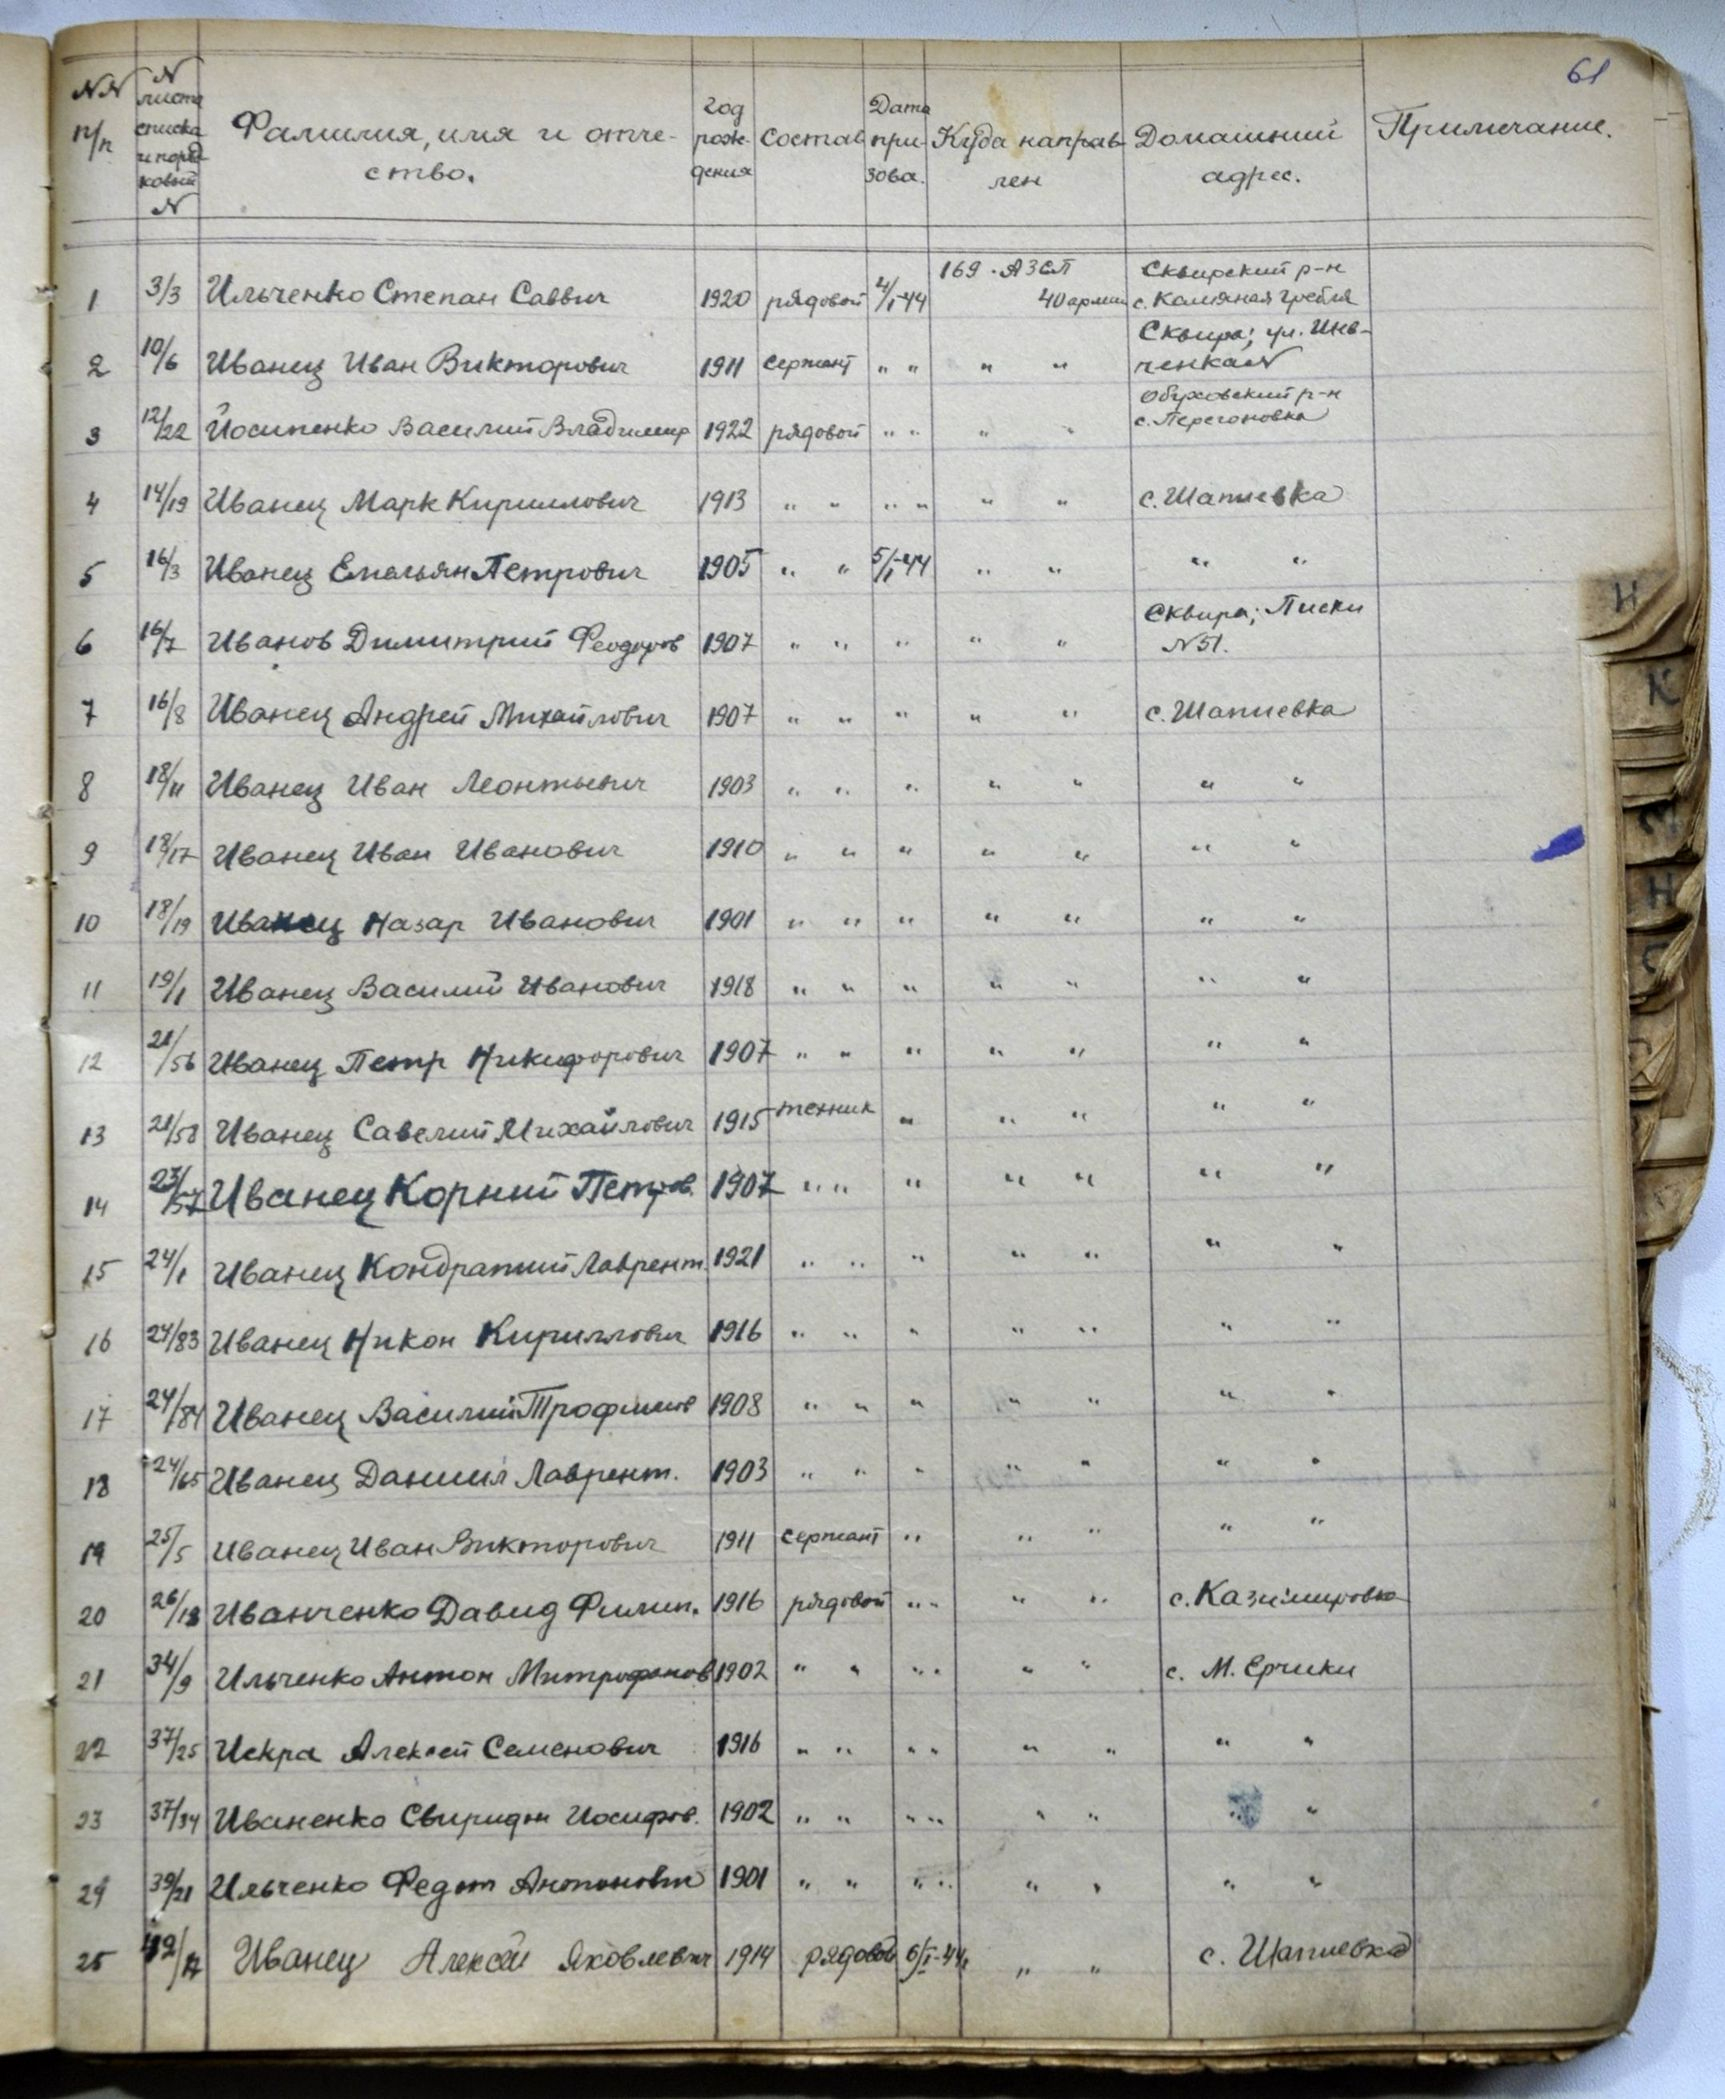 61
NN п/п N листа списка и порядковый N Фамилия, имя и отчество. Год рождения Состав Дата призова. Куда направлен Домашний адрес. Примечание.
1 3/3 Ильченко Степан Саввич 1920 рядовой 4/I-44 169 АЗСП 40 армии Сквирский р-н с. Камяная Гребля
2 10/6 Иванец Иван Викторович 1911 сержант " " " " Сквира; ул.
3 12/22 Йосипенко Василий Владимир 1922 рядовой " " " " Обуховский р-н с. Перегоновка
4 14/19 Иванец Марк Кириллович 1913 " " " " " " с. Шапиевка
5 16/3 Иванец Емельян Петрович 1905 " " 5/I-44 " " " "
6 16/7 Иванов Димитрий Феодоров 1907 " " " " " Сквира; Писки N51.
7 16/8 Иванец Андрей Михайлович 1907 " " " " " с. Шапиевка
8 18/11 Иванец Иван Леонтьевич 1903 " " " " " " "
9 18/17 Иванец Иван Иванович 1910 " " " " " " "
10 18/19 Иванец Назар Иванович 1901 " " " " " " "
11 19/1 Иванец Василий Иванович 1918 " " " " " " "
12 21/56 Иванец Петр Никифорович 1907 " " " " " " "
13 21/58 Иванец Савелий Михайлович 1915 техник " " " " "
14 23/57 Иванец Корний Петров. 1907 " " " " " " "
15 24/1 Иванец Кондратий Лаврент. 1921 " " " " " " "
16 24/83 Иванец Никон Кириллович 1916 " " " " " " "
17 24/84 Иванец Василий Трофимов 1908 " " " " " " "
18 24/65 Иванец Даниил Лаврент. 1903 " " " " " " "
19 25/5 Иванец Иван Викторович 1911 сержант " " " " "
20 26/13 Иванченко Давид Филип. 1916 рядовой " " " " с. Казимировка
21 34/9 Ильченко Антон Митрофанов 1902 " " " " " " с. М. Ерчики
22 37/25 Искра Алексей Семенович 1916 " " " " " " " "
23 37/34 Иваненко Свиридон Иосифов. 1902 " " " " " " " "
24 39/21 Ильченко Федот Антонович 1901 " " " " " " " "
25 42/17 Иванец Алексей Яковлевич 1914 рядовой 6/I-44 " " с. Шапиевка
Н
К
Н